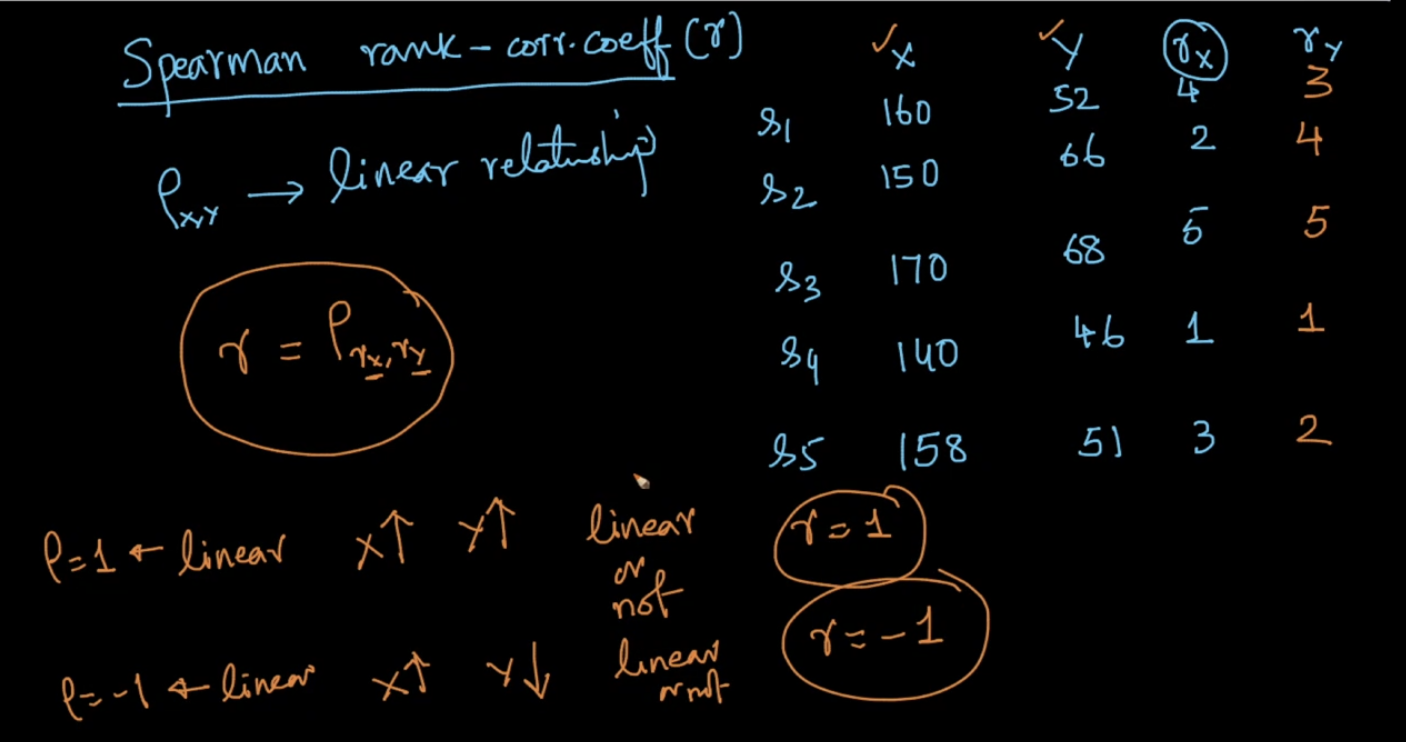 Spearman rank-corr.coeff (r)
ρx,y → linear relatnship
r = ρrx,ry
X Y rx ry
s1 160 52 4 3
s2 150 66 2 4
s3 170 68 5 5
s4 140 46 1 1
s5 158 51 3 2
ρ=1 ← linear x↑ y↑ linear or not r=1
ρ=-1 ← linear x↑ y↓ linear or not r=-1